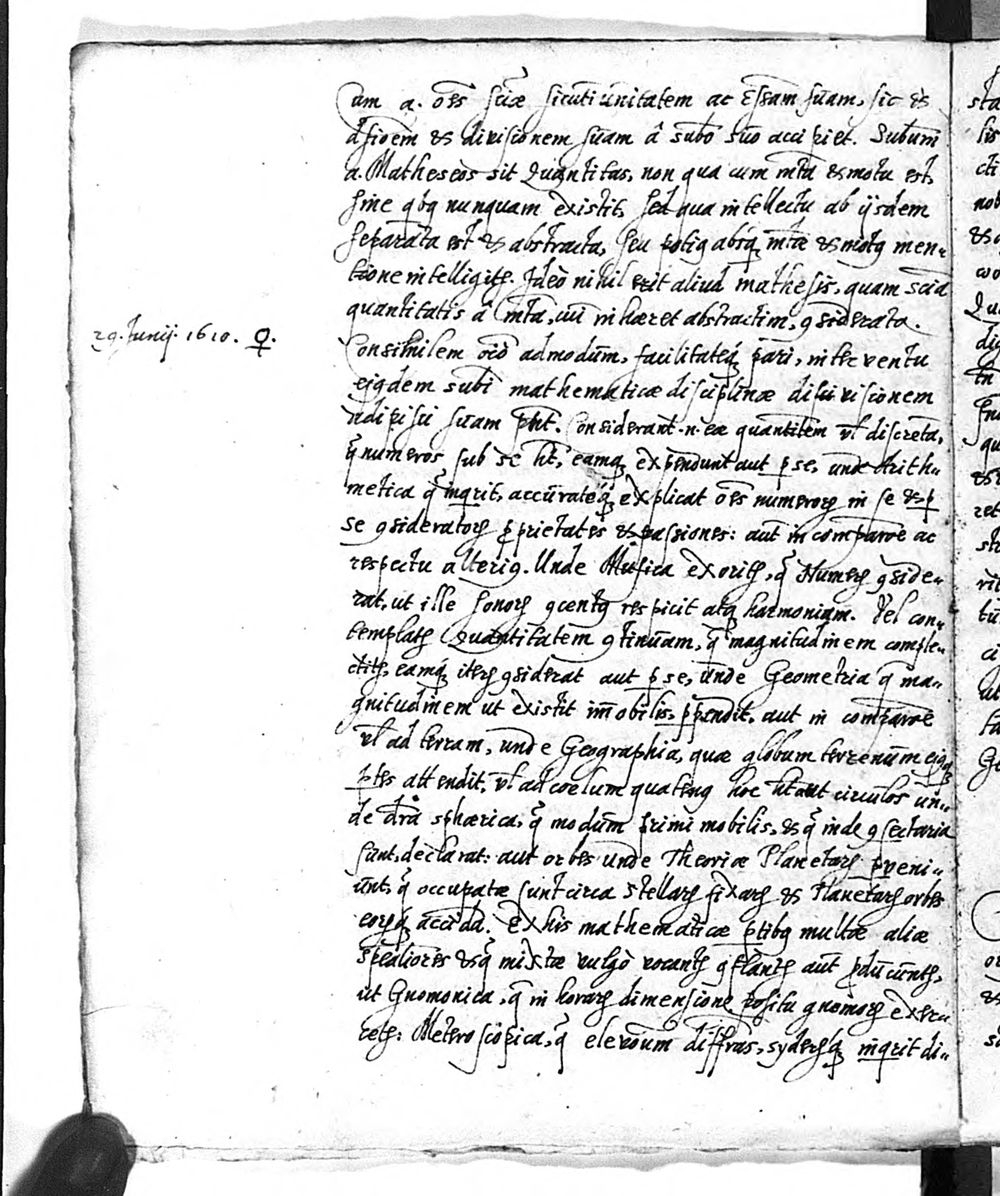 Cum a. oēs sciæ sicuti unitatem ac Essām suam, sic et
dstioēm et divisionem suam à subō suo accipiet. Subūm
a. Matheseos sit Quantitas, non qua cum mtā et motu est,
sine qbq nunquam existit, sed qua intellectu ab ijsdem
separata est et abstracta, seu potiq absq mtæ et motq men=
tione intelligitr. Ideò nihil erit aliud mathesis, quam sciā
quantitatis à mtā, cui inhæret abstractim, 9siderata.
29. Junij. 1610. ♀.
Consimilem admodum, facilitateq pari, interventu
ejqdem subi mathematicæ disciplinæ divisionem
adipisci suam pnt. Considerant .n. eæ quantitēm vl discretā,
q numeros sub se ht, eamq expendunt aut p se, unde Arith=
metica q inqrit, accurateq explicat oēs numerors in se et p
se 9siderators pprietates et passiones: aut in comparōe ac
respectu alteriq. Unde Musica exoritr, q Numers 9side=
rat, ut ille sonors 9centq respicit atq harmoniam. Vel con=
templatr Quantitatem 9tinuam, q magnitudinem comple=
ctitr, eamq iterr 9siderat aut p se, unde Geometria q ma=
gnitudinem ut existit imobilis, ppendit, aut in comparōe
vl ad terram, unde Geographia, quæ globum terrenum ejqq
ptes attendit, vl ad coelum quatenq hoc ht aut circulos un=
de drā sphærica, q modum primi mobilis, et q inde 9sectaria
sunt, declarat: aut orbes unde Theoriæ Planetars pveni=
unt, q occupatæ sunt circa stellars fixars et Planetars orbes
eorsq accidā. Ex his mathematicæ ptibq multæ aliæ
spēaliores et q mixtæ vulgò vocantr 9flantr aut pducuntr,
ut Gnomonica, q in horars dimensione positu gnomors exerce
cetr: Meteroscopica, q elevōum diffrās, sydersq inqrit di=